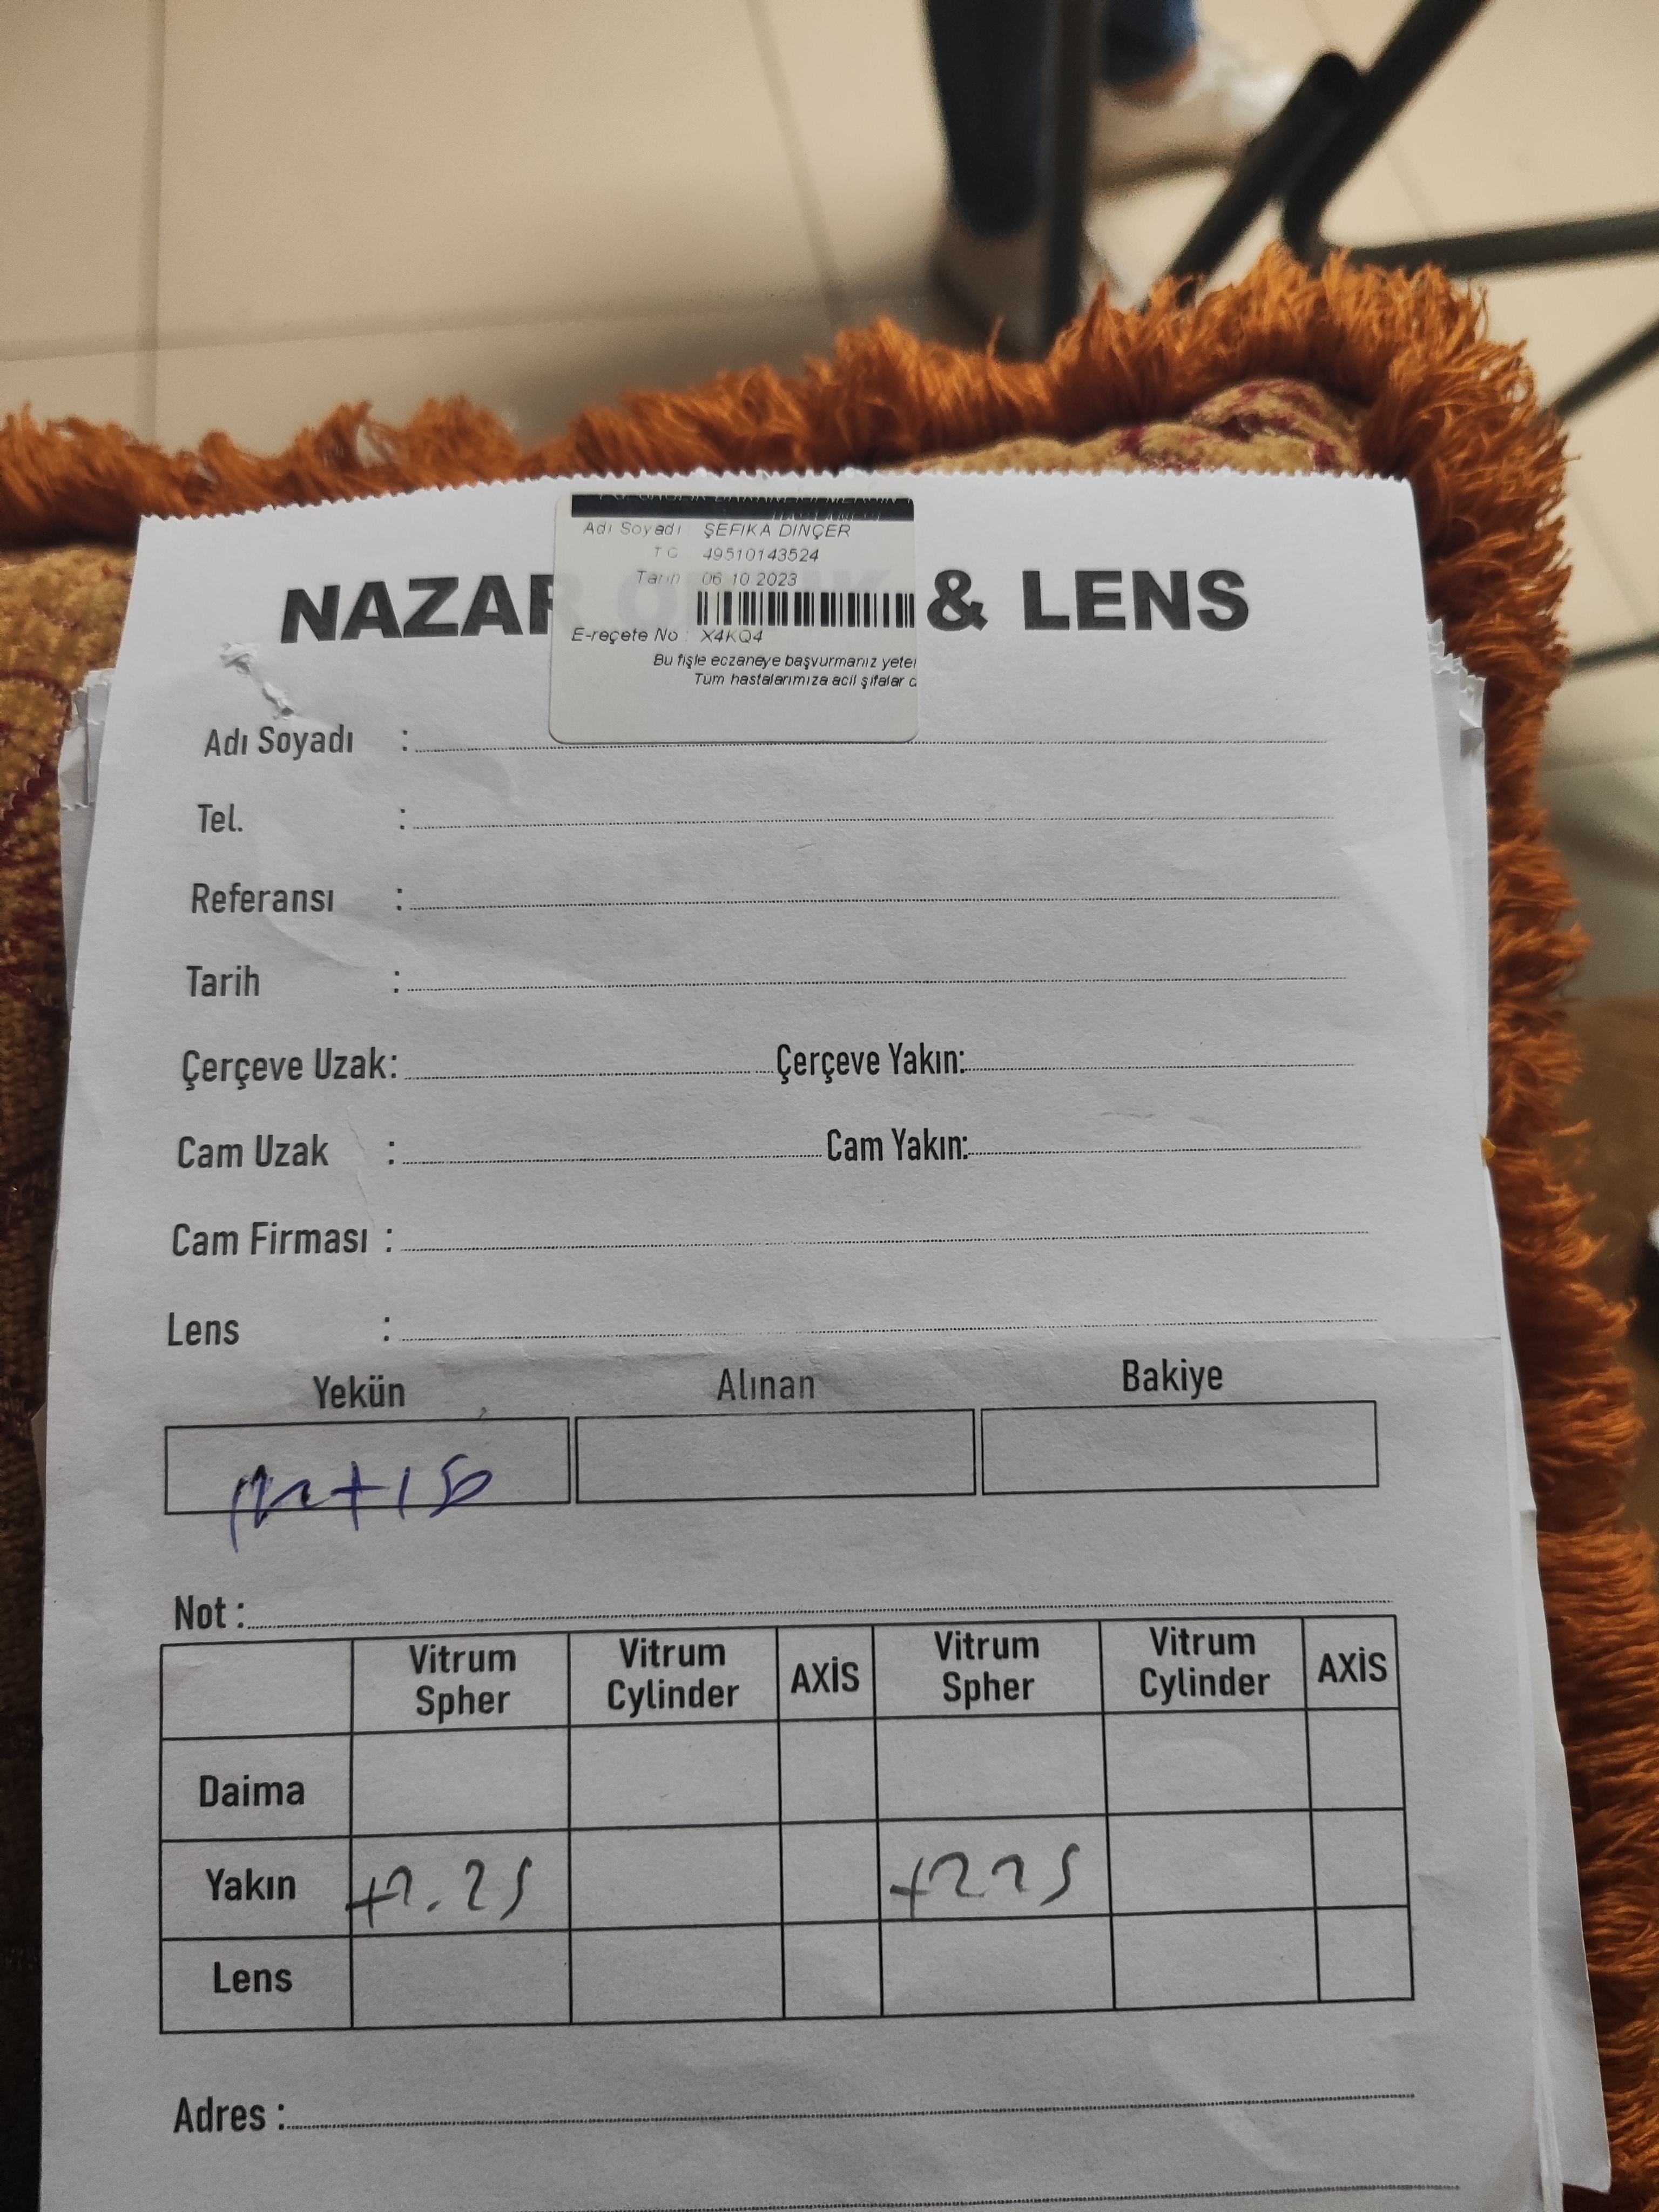 Adı Soyadı ŞEFIKA DINÇER
TC 49510143524
Tarih 06 10 2023
NAZAR & LENS
E-reçete No : X4KQ4
Bu fişle eczaneye başvurmanız yeter
Tüm hastalarımıza acil şifalar d
Adı Soyadı :
Tel. :
Referansı :
Tarih :
Çerçeve Uzak: Çerçeve Yakın:
Cam Uzak : Cam Yakın:
Cam Firması :
Lens :
Yekün Alınan Bakiye
Not :
Vitrum Spher Vitrum Cylinder AXİS Vitrum Spher Vitrum Cylinder AXİS
Daima
Yakın +2.25 +225
Lens
Adres :